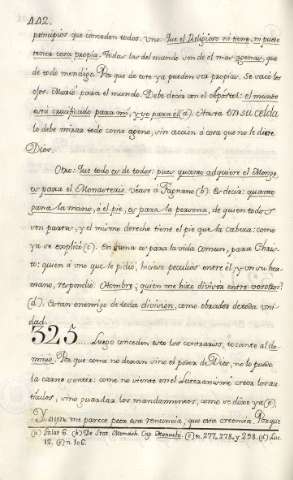 442.
principios que conceden todos. Uno. Que el Religioso ni tiene, ni puede
tener cosa propia. Todas las del mundo son de él mas agenas, que
de todo mendigo. Por que de este ya pueden ser propias. Se vació de
ser. Murió para el mundo. Debe decir con el Apóstol: el mundo
está crucificado para mí, y yo para él (a). Hasta en su celda
lo debe mirar todo como ageno, sin accion á cosa que no le diere
Dios.
Otro: Que todo es de todos: pues quanto adquiere el Monge,
es para el Monasterio. Véase á Fagnano (b). Es decir: quanto
gana la mano, ó el pie, es para la persona, de quien todo
y el mismo derecho tiene el pie que la cabeza: como
ya se explicó (c). En suma es para la vida comun, para Chris-
to: quien á uno que le pidió, hiciese peculiar entre él y su her-
mano, respondió: Hombre, quien me hizo divisor entre vosotros?
(d). Es tan enemigo de toda division, como obrador de toda uni-
dad.
325. Luego conceden esto los contrarios, tocante al do-
minio. Por que como no desean vino el pan de Dios, no lo
la carne contra: como no vieron en el Luteranismo creer los ar-
tículos, sino guardar los mandamientos, como se dixo ya (e).
Y aun me parece peor esta renuncia, que esta creencia. Porque
(a) Galat. 6. (b) De Stat. Monach. Cap. (c) n. 277, 278, y 298. (d) Luc.
12. (e) n. 106.